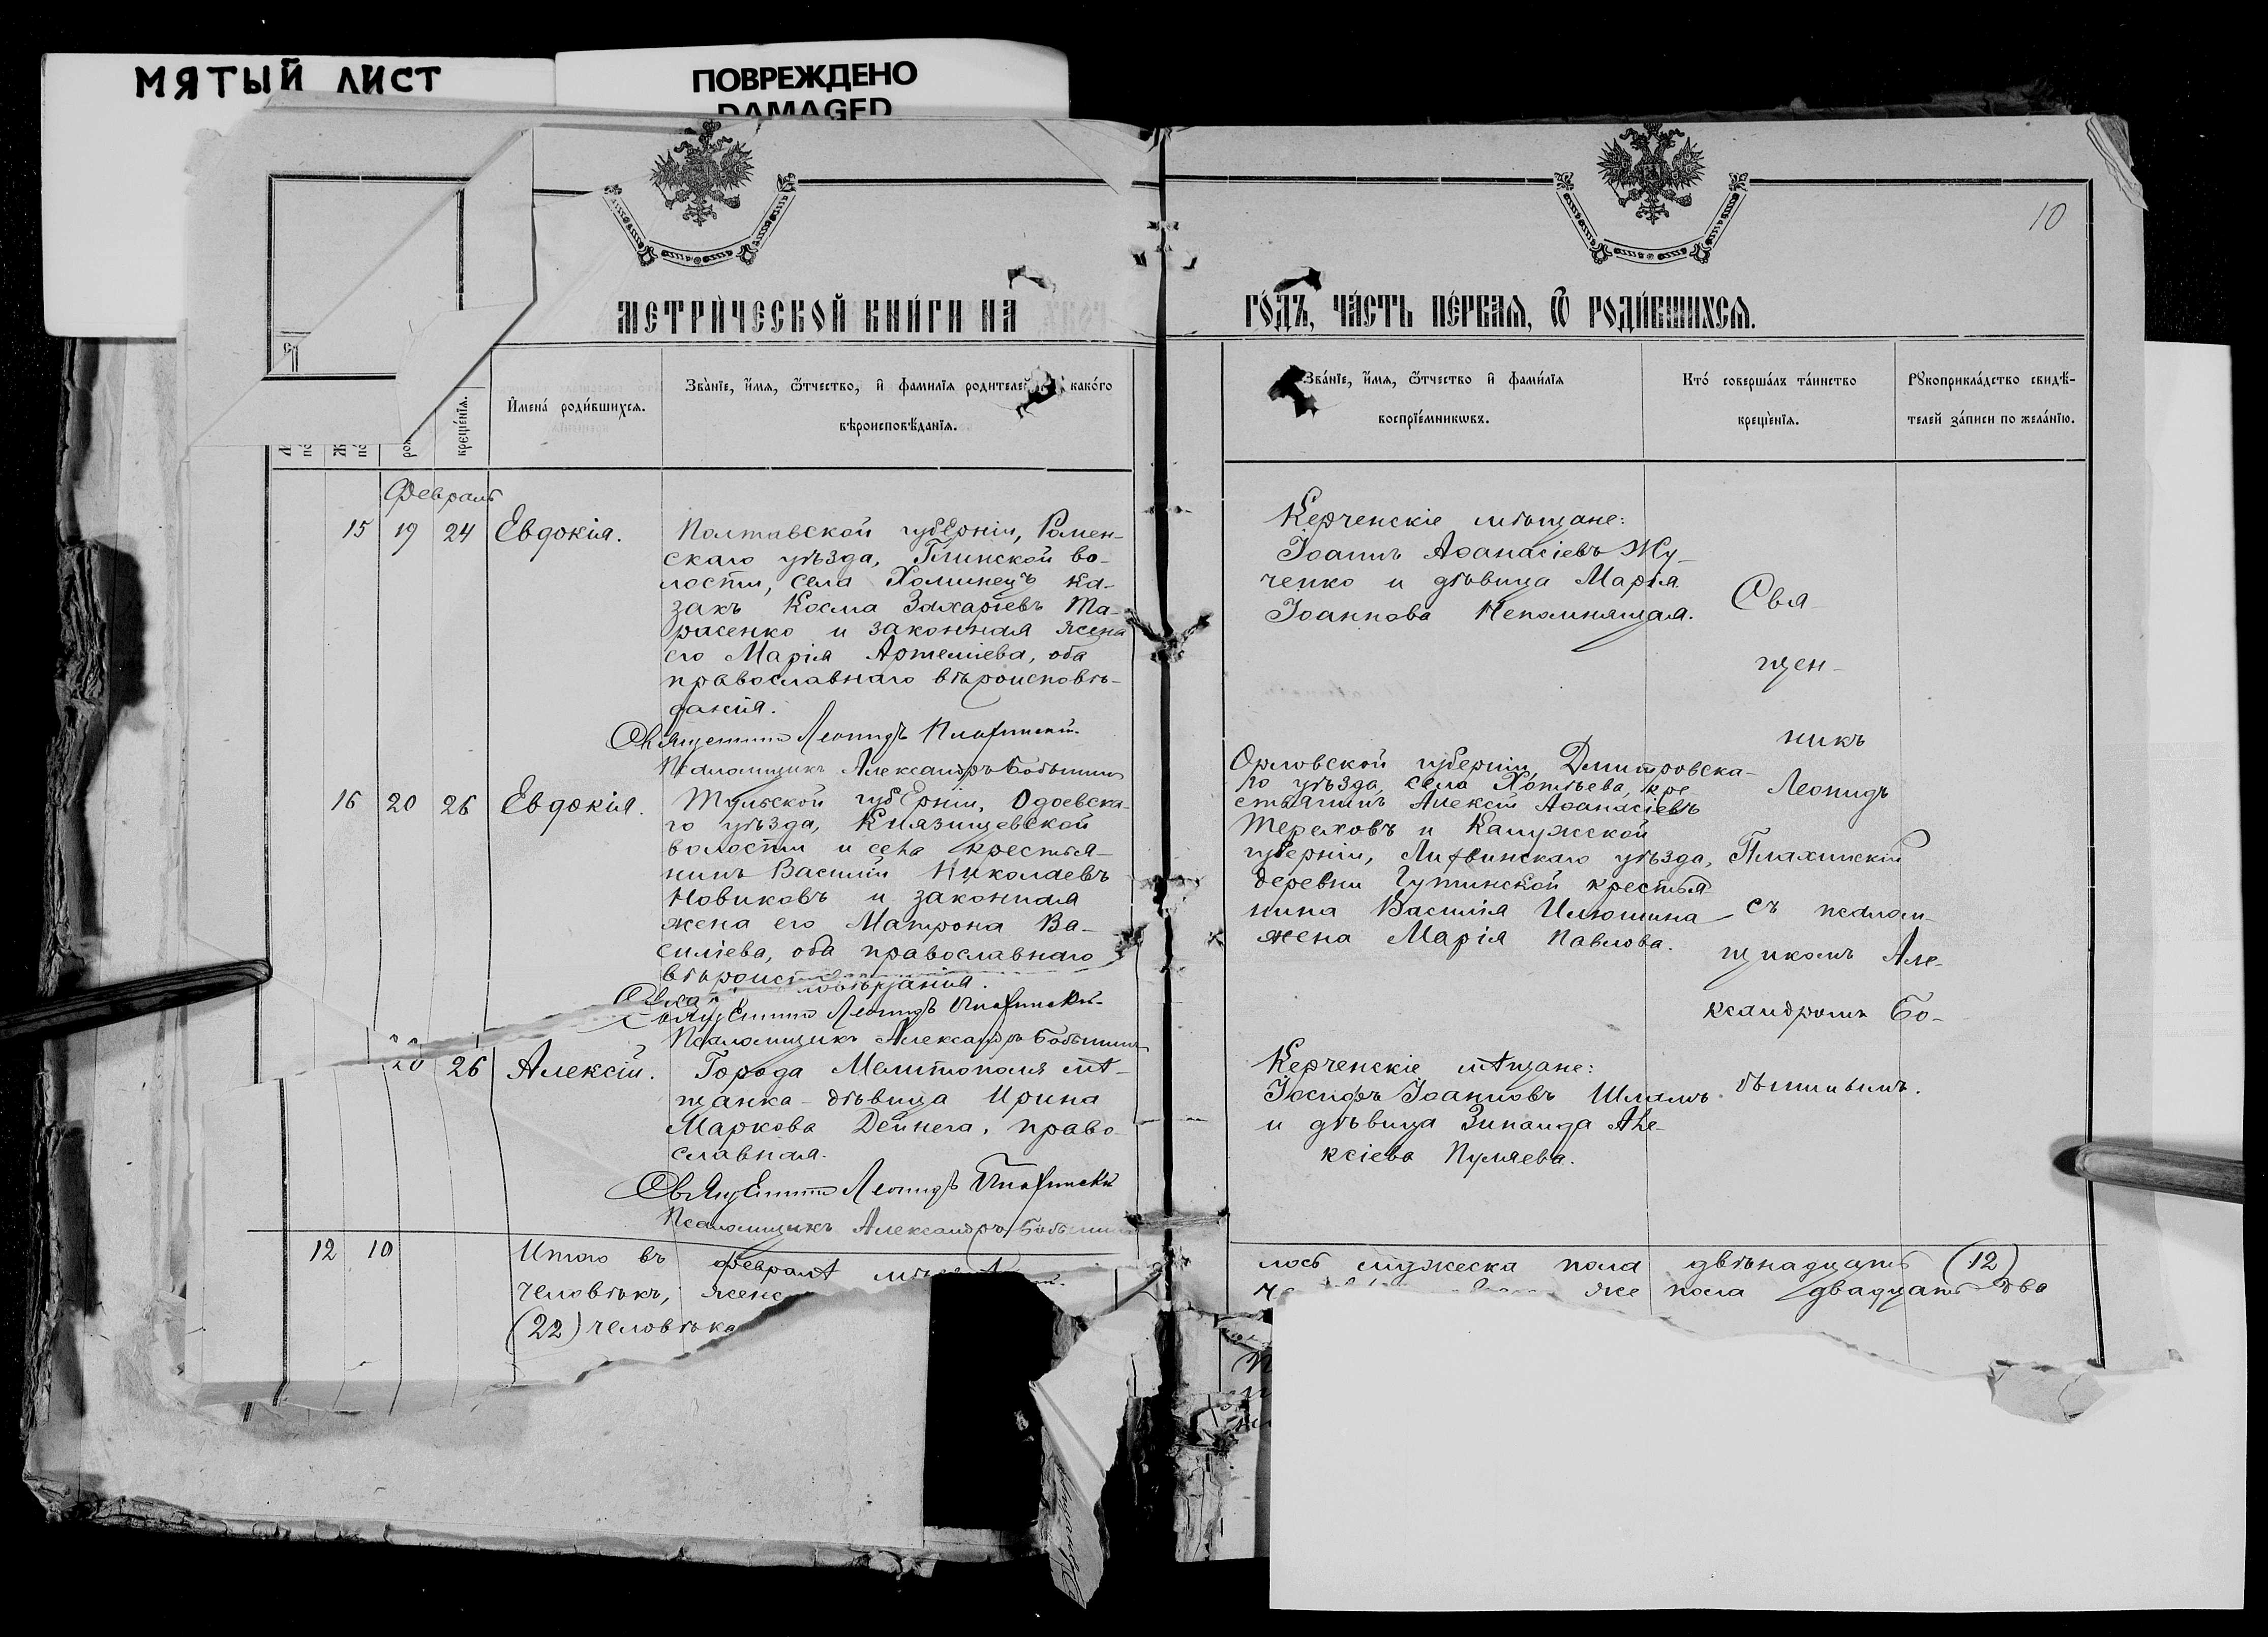 МЯТЫЙ ЛИСТ
ПОВРЕЖДЕНО
DAMAGED
10
МЕТРИ́ЧЕСКОЙ КНИ́ГИ НА
ГО́ДЪ, ЧА́СТЬ ПЕ́РВАѦ, Ѿ РОДИ́ВШИХСѦ.
крещє́нїѧ.
И҆мена̀ роди́вшихсѧ.
Зва́нїе, и҆́мѧ, ѻ҆́тчество, и҆ фами́лїѧ родителей како́го
вѣроисповѣ́данїѧ.
Зва́нїе, и҆́мѧ, ѻ҆́тчество и҆ фами́лїѧ
воспрїе́мникѡвъ.
Кто̀ соверша́лъ та́инство
креще́нїѧ.
Рꙋкоприкла́дство свидѣ́-
телей за́писи по жела́нїю.
Февраль
15 19 24 Евдокія.
Полтавской губерніи, Ромен-
скаго уѣзда, Глинской во-
лости, села Хоминецъ ка-
закъ Косма Захаріевъ Та-
расенко и законная жена
его Марія Артеміева, оба
православнаго вѣроисповѣ-
данія.
Священникъ Леонидъ Плахинскій
Псаломщикъ Александръ Бобышинъ
Керченскіе мѣщане:
Іоаннъ Аѳанасіевъ Жу-
ченко и дѣвица Марія
Іоаннова Непомнящая.
16 20 26 Евдокія.
Тульской губерніи, Одоевска-
го уѣзда, Князищевской
волости и села крестья-
нинъ Василій Николаевъ
Новиковъ и законная
жена его Матрона Ва-
силіева, оба православнаго
вѣроисповѣданія.
Священникъ Леонидъ Плахинскій
Псаломщикъ Александръ Бобышинъ
Орловской губерніи, Дмитровска-
го уѣзда, села Хотѣева, кре-
стьянинъ Алексій Аѳанасіевъ
Тереховъ и Калужской
губерніи, Лихвинскаго уѣзда,
деревни Гутинской крестья-
нина Василія Илюшина
жена Марія Павлова.
20 26 Алексій.
Города Мелитополя мѣ-
щанка-дѣвица Ирина
Маркова Дейнега, право-
славная.
Священникъ Леонидъ Плахинскій
Псаломщикъ Александръ Бобышинъ
Керченскіе мѣщане:
Іосифъ Іоанновъ Шламъ
и дѣвица Зинаида Але-
ксіева Пуляева.
Свя-
щен-
никъ
Леонидъ
Плахинскій
съ псалом-
щикомъ Але-
ксандромъ Бо-
бышинымъ.
12 10
Итого въ февралѣ
человѣкъ,
(22) человѣка
лось мужеска пола двѣнадцать (12)
же пола двадцать два